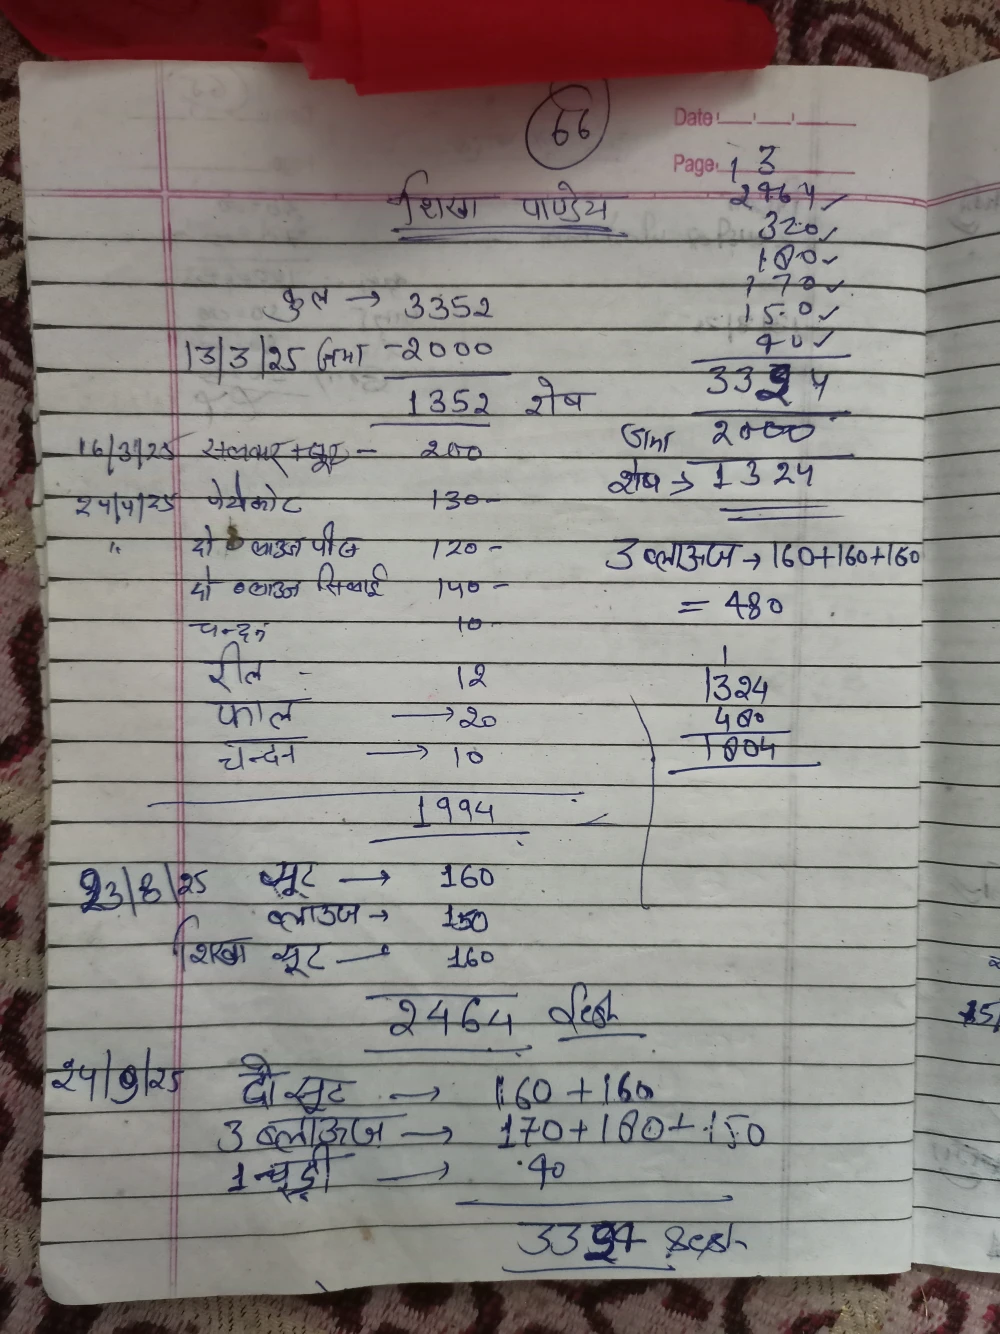 66
Date
Page
शिखा पाण्डेय
कुल → 3352
13/3/25 जमा -2000
1352 शेष
16/3/25 सलवार + सूट - 200
24/4/25 पेटीकोट 130-
" दो ब्लाउज पीस 120-
दो ब्लाउज सिलाई 140-
चन्दन 10-
रील - 12
फाल → 20
चन्दन → 10
1994
23/8/25 सूट → 160
ब्लाउज → 150
शिखा सूट — 160
2464
24/9/25 दो सूट → 160 + 160
3 ब्लाऊज → 170 + 180 + 150
1 चूड़ी → 40
3324
1 3
2464
320
180
170
150
40
3324
जमा 2000
शेष → 1324
3 ब्लाऊज → 160+160+160
= 480
1
1324
480
1804